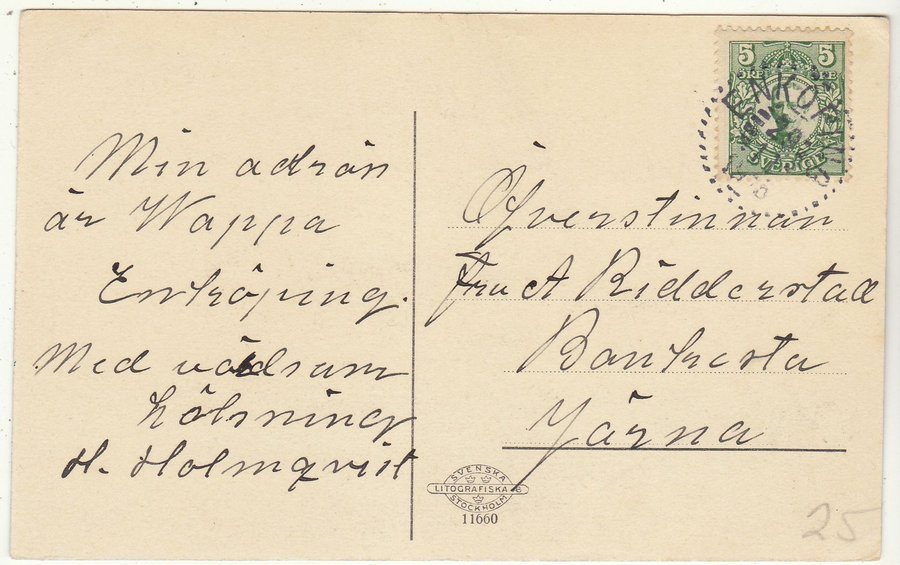 Min adräs
är Wappa
Enköping.
Med vördsam
hälsning
H. Holmqvist
5 5
ÖRE ÖRE
SVERIGE
ENKÖPING
Öfverstinnan
Fru A Ridderstad
Bankesta
Järna
SVENSKA
LITOGRAFISKA
STOCKHOLM
11660
25